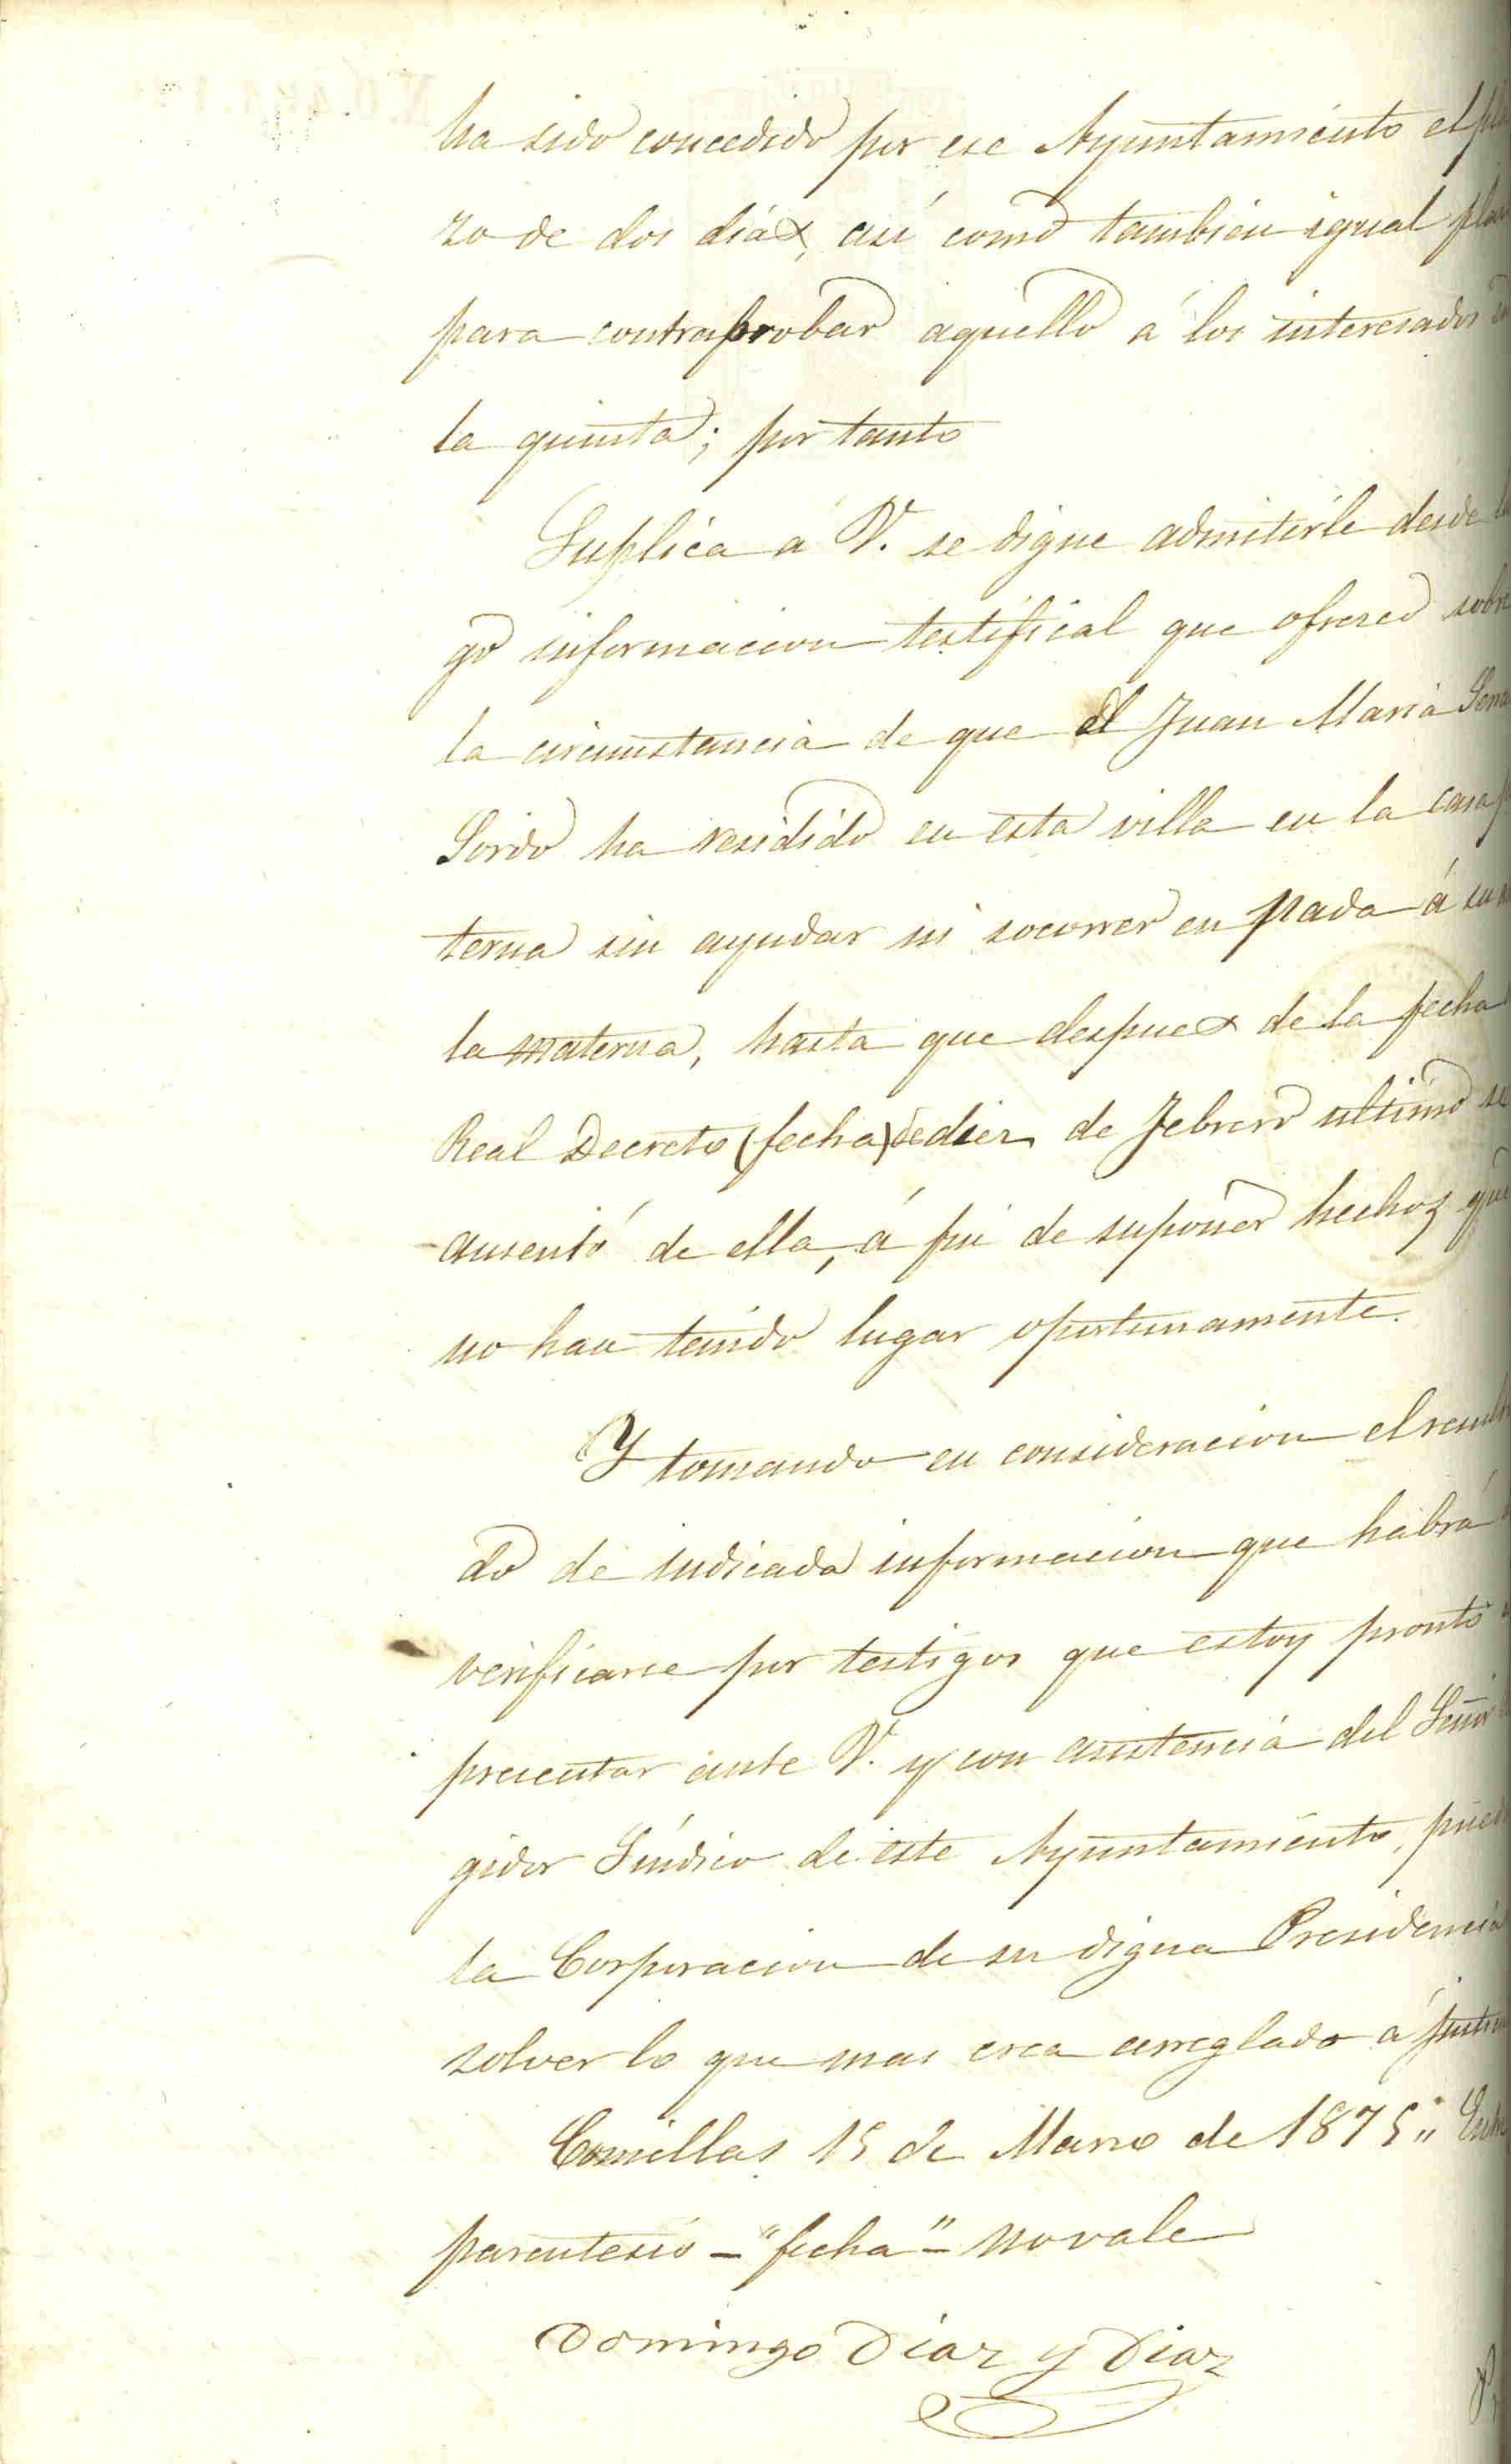 ha sido concedido por ese Ayuntamiento el pla
zo de dos diás, asi como tambien igual pla
para contraprobar aquello á los interesados en
la quinta; por tanto
Suplica a V. se digne admitirle desde lu
go informacion testifical que ofrezco sobre
la circunstancia de que el Juan Maria
Sordo ha residido en esta villa en la casa pa
terna sin ayudar ni socorrer en nada á su
la materna, hasta que despues de la fecha
Real Decreto (fecha) de diez de Febrero ultimo se
ausentó de ella, á fin de suponer hechos que
no han tenido lugar oportunamente.
Y tomando en consideracion el resulta
do de indicada informacion que habrá
verificarse por testigos que estoy pronto
presentar ante V. y con asistencia del Señor
gidor Síndico de este Ayuntamiento, pued
la Corporacion de su digna Presidencia
solver lo que mas crea arreglado a justi
Comillas 15 de Marzo de 1875 " Entre
parentesis - "fecha" - no vale
Domingo Díaz y Diaz